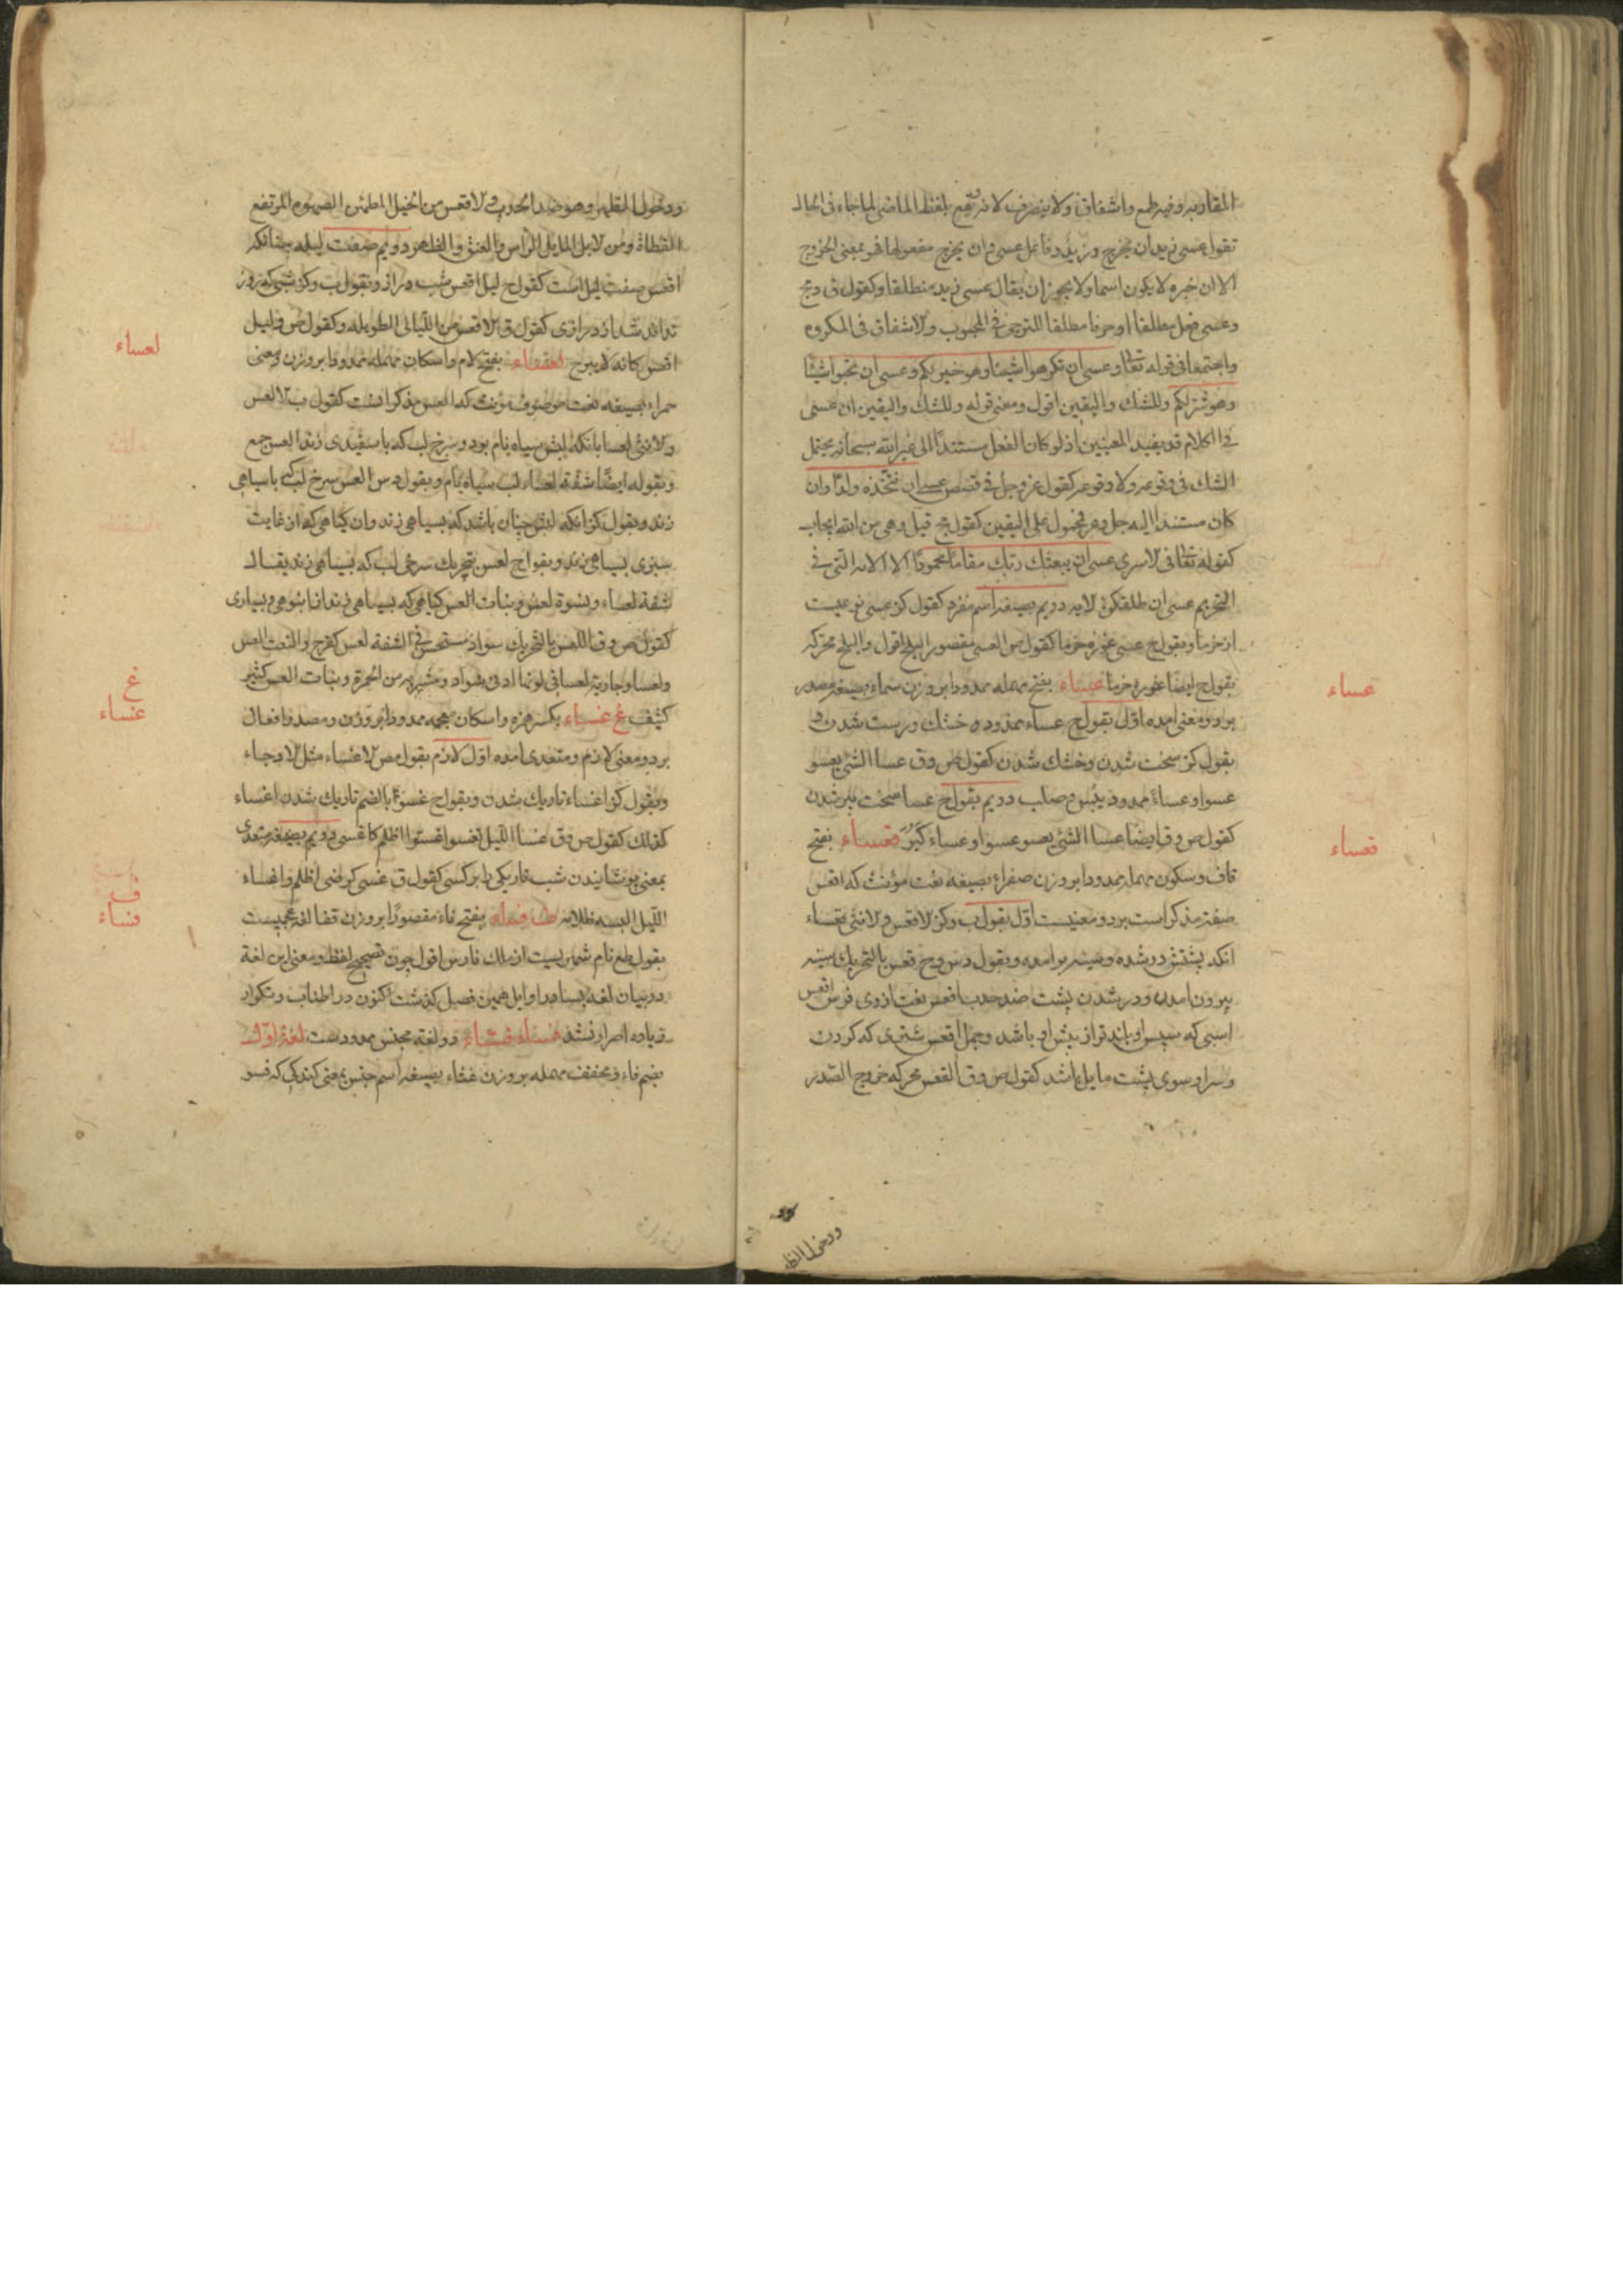 المقاربه وفيه طمع واشفاق ولا ينصرف لانه وقع بلفظ الماضی لما جاء فی الحال
تقول عسی زید ان یخرج وزید فاعل عسی وان یخرج مفعولها فهو بمعنی الخروج
الا ان خبره لا یکون اسما ولا یجوز ان یقال عسی زید منطلقا وکقول ق ویج
وعسی فعل مطلقا او حرفا مطلقا للترجی فی المحبوب والاشفاق فی المکروه
واجتمعا فی قوله تعا وعسی ان تکرهوا شیئا وهو خیر لکم وعسی ان تحبوا شیئا
وهو شر لکم وللشك والیقین اقول ومعنی قوله وللشك والیقین ان عسی
فی الکلام قد یفید المعنیین اذ لو کان الفعل مستندا الی غیر الله سبحانه یحتمل
الشك فی وقوعه ولا وقوعه کقول عز وجل فی قصص عسی ان نتخذه ولدا وان
کان مستندا الیه جل وعز فمحمول علی الیقین کقول یج قیل وهی من الله ایجاب
کقوله تعا فی لاسری عسی ان یبعثك ربك مقاما محمودا الا الایه التی فی
التحریم عسی ان طلقکن لایه دویم بصیغه اسم مفرد کقول کز عسی نوعیست
از خرما وبقول ج عسی غوره خرما کقول ص العسی مقصور البلح اقول والبلح محرکه
بقول ج ایضا غوره خرما عساء بفتح مهمله ممدودا بر وزن سماء بصیغه مصدر
بر دو معنی امده اول بقول ج عساء ممدوده خشك ودرست شدن و
بقول کز سخت شدن وخشك شدن کقول ص وق عسا الشئ یعسو
عسوا وعساءً ممدود یبس وصلب دویم بقول ج عسا سخت پیر شدن
کقول ص وق ایضا عسا الشئ یعسو عسوا وعساء کَبُرَ قعساء بفتح
قاف وسکون مهمله ممدودا بر وزن صفراء بصیغه نعت مؤنث که اقعس
صفة مذکر است بر دو معنیست اول بقول ب وکز لاقعس ولانثی قعساء
انکه پشتش در شده وسینه بر امده وبقول دس وج قعس بالتحریك سینه
بیرون امدن ودر شدن پشت ضد حدب اقعس نعت از وی فرس اقعس
اسبی که سپس او بلند تر از پیش او باشد وجمل اقعس شتری که کردن
وسر او سوی پشت مایل باشد کقول ص وق القعس محرکه خروج الصدر
ودخول الظه
عساء
قعساء
ودخول الظهر وهو ضد الحدب و لاقعس من الخیل المطمئن الصهوه المرتفع
القطاة ومن لابل المایل الراس والعنق والظهر دویم صفت لیله چنانکه
اقعس صفت لیل است کقول ج لیل اقعس شب دراز وبقول ب وکز شبی که روز
نداند شد از درازی کقول ق لاقعس من اللیالی الطویله وکقول ص ولیل
اقعس کانه لا یبرح لعساء بفتح لام واسکان مهمله ممدودا بر وزن ومعنی
حمراء بصیغه نعت موصوف مؤنث که العس مذکر انست کقول ب لالعس
ولانثی لعسا بانکه لبش سیاه بام بود وسرخ لب که با سفیدی زند العس جمع
وبقوله ایضا شفة لعساء لب سیاه بام وبقول دس العس سرخ لب که با سیاهی
زند وبقول کز انکه لبش چنان باشد که بسیاهی زند وان کیاهی که از غایت
سبزی بسیاهی زند وبقول ج لعس بتحریك سرخی لب که بسیاهی زند یقال
شفة لعساء ونسوة لعس ونبات العس کیاهی که بسیاهی زند از انبوهی وبسیاری
کقول ص وق اللعس بالتحریك سواد مستحسن فی الشفه لعس کفرح والنعت العس
ولعسا وجاریة لعسا فی لونها ادنی سواد ومشربه من الحمرة ونبات العس کثیر
کثیف غ غساء بکسر همزه واسکان معجمه ممدودا بر وزن ومصدر افعال
بر دو معنی لازم ومتعدی امده اول لازم بقول مص لاغساء مثل لاوجاء
وبقول کز اغساء تاریك شدن وبقول ج غسوّا بالضم تاریك شدن اغساء
کذلك کقول ص وق غسا اللیل یغسو اغسوّا اظلم کاغسی دویم بصیغه متعدی
بمعنی پوشانیدن شب تاریکی را بر کسی کقول ق غسی کرضی اظلم واغساء
اللیل البسه ظلامه ف فساء بفتح فاء مقصورا بر وزن قفا لغة عجمیست
بقول طع نام شهریست از ملك فارس اقول چون تصحیح لفظ ومعنی این لغة
در بیان لغة بسا در اوایل همین فصیل کذشت اکنون در اطناب وتکرار
زیاده اصرار نشد فساء فشاء دو لغته مجنس ممدودست لغة اول
بضم فاء ومخفف مهمله بر وزن غثاء بصیغه اسم جنس بمعنی کندکی که فسو
لعساء
غ
غساء
ف
فساء